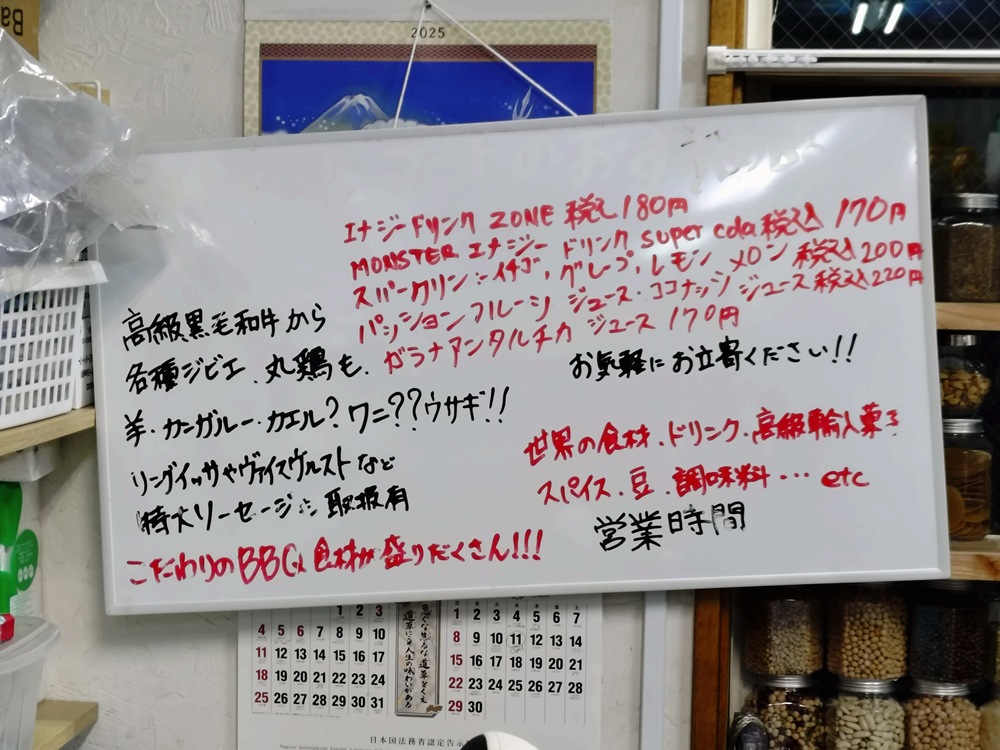 Ba
2025
エナジードリンク ZONE 税込180円
MONSTER エナジー ドリンク super cola 税込 170円
スパークリン:イチゴ,グレープ,レモン メロン 税込 200円
パッションフルーツ ジュース・ココナッツ ジュース 税込 220円
ガラナアンタルチカ ジュース 170円
高級黒毛和牛から
各種ジビエ、丸鶏も、
お気軽にお立寄ください!!
羊・カンガルー・カエル?ワニ??ウサギ!!
リングイッサやヴァイスヴルストなど
特大ソーセージ 取扱有
こだわりのBBQ食材が盛りだくさん!!!
世界の食材、ドリンク、高級輸入菓子
スパイス、豆、調味料…etc
営業時間
1 2 3
4 5 6 7 8 9 10
11 12 13 14 15 16 17
18 19 20 21 22 23 24
25 26 27 28 29 30 31
1 2 3 4 5 6 7
8 9 10 11 12 13 14
15 16 17 18 19 20 21
22 23 24 25 26 27 28
29 30
日本国法務省認定告示